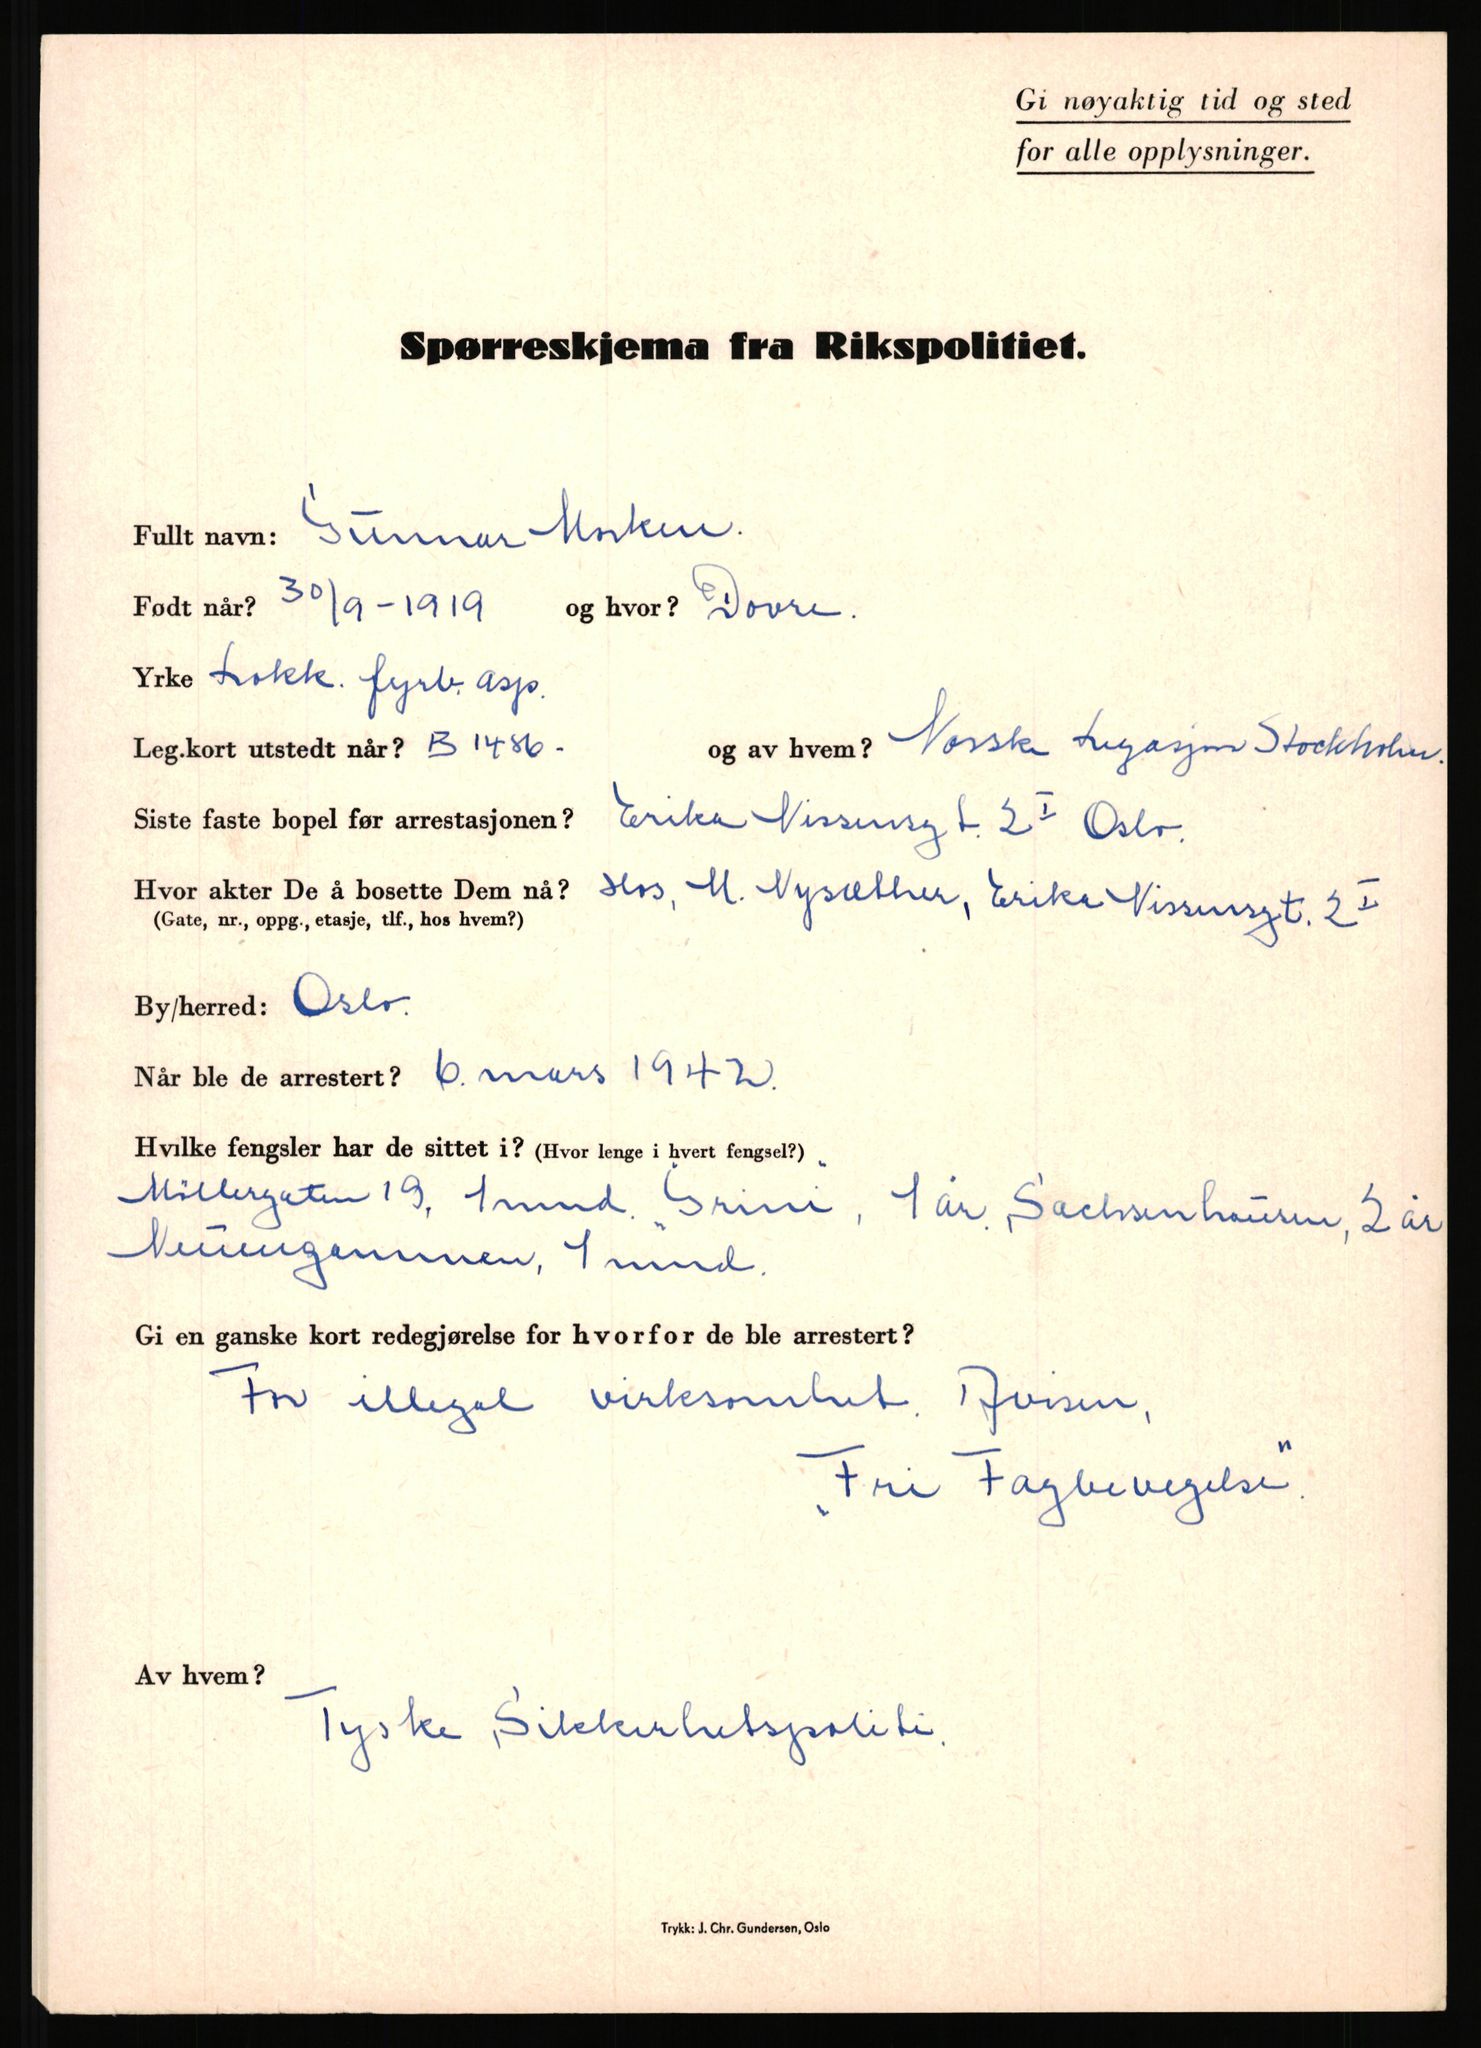 Gi nøyaktig tid og sted
for alle opplysninger.
Spørreskjema fra Rikspolitiet.
Fullt navn: Gunnar Morken.
Født når? 30/9-1919 og hvor? Dovre.
Yrke Lokk. fyrb. asp.
Leg.kort utstedt når? B 1486- og av hvem? Norske Legasjon Stockholm.
Siste faste bopel før arrestasjonen? Erika Nissensgt. 2 I Oslo.
Hvor akter De å bosette Dem nå? Hos, M. Nysæther, Erika Nissensgt. 2 I
(Gate, nr., oppg., etasje, tlf., hos hvem?)
By/herred: Oslo.
Når ble de arrestert? 6. mars 1942.
Hvilke fengsler har de sittet i? (Hvor lenge i hvert fengsel?)
Möllergaten 19, 1 mnd. "Grini", 1 år. Sachsenhausen, 2 år
Neuengammen, 1 mnd.
Gi en ganske kort redegjørelse for hvorfor de ble arrestert?
For illegal virksomhet. Avisen,
"Fri Fagbevegelse".
Av hvem?
Tyske Sikkerhetspoliti.
Trykk: J. Chr. Gundersen, Oslo